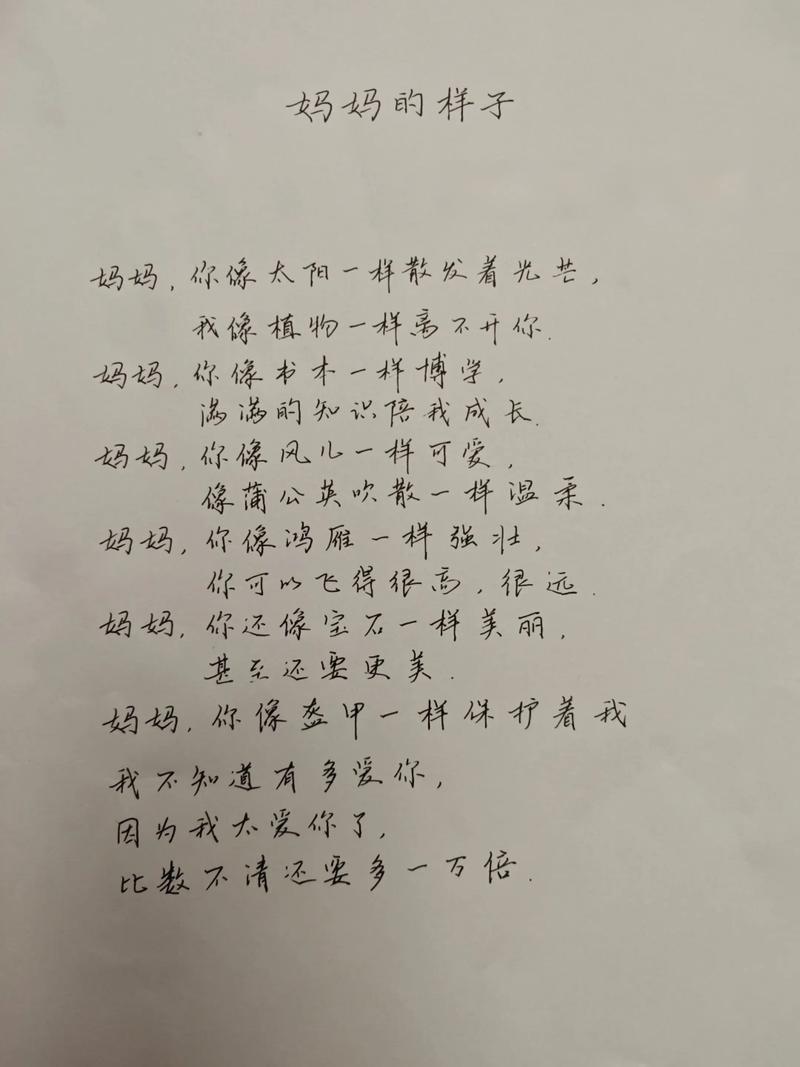 妈妈的样子
妈妈，你像太阳一样散发着光芒，
我像植物一样离不开你.
妈妈，你像书本一样博学，
满满的知识陪我成长.
妈妈，你像风儿一样可爱，
像蒲公英吹散一样温柔.
妈妈，你像鸿雁一样强壮，
你可以飞得很高，很远.
妈妈，你还像宝石一样美丽，
甚至还要更美.
妈妈，你像盔甲一样保护着我
我不知道有多爱你，
因为我太爱你了，
比数不清还要多一万倍.